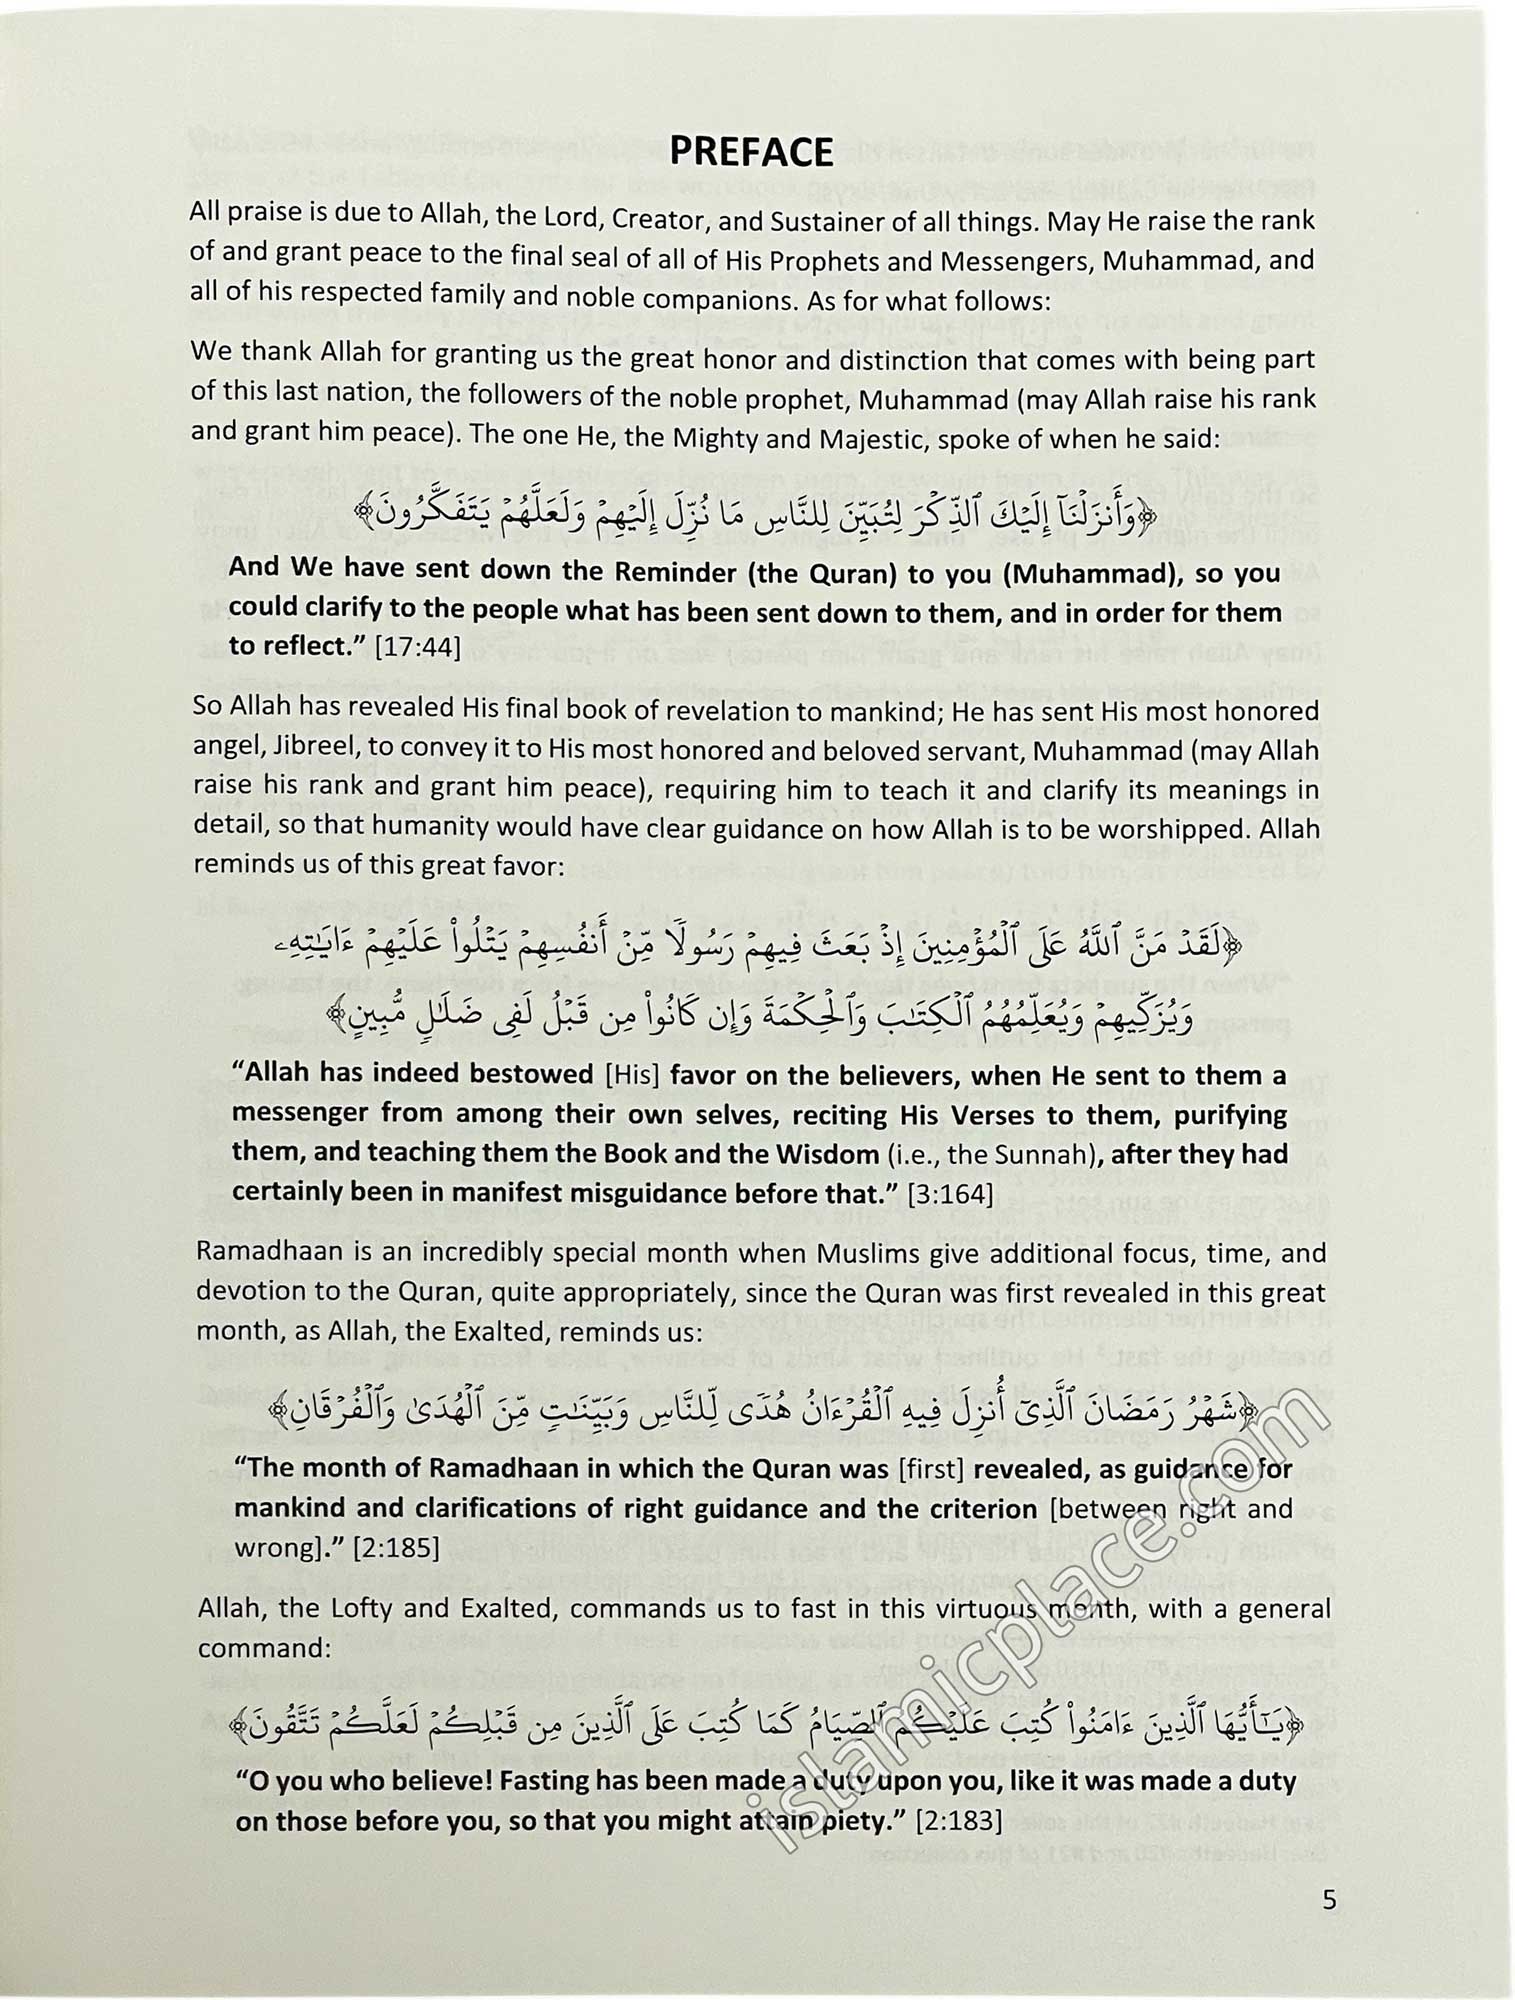 PREFACE
All praise is due to Allah, the Lord, Creator, and Sustainer of all things. May He raise the rank
of and grant peace to the final seal of all of His Prophets and Messengers, Muhammad, and
all of his respected family and noble companions. As for what follows:
We thank Allah for granting us the great honor and distinction that comes with being part
of this last nation, the followers of the noble prophet, Muhammad (may Allah raise his rank
and grant him peace). The one He, the Mighty and Majestic, spoke of when he said:
﴿وَأَنزَلۡنَآ إِلَيۡكَ ٱلذِّكۡرَ لِتُبَيِّنَ لِلنَّاسِ مَا نُزِّلَ إِلَيۡهِمۡ وَلَعَلَّهُمۡ يَتَفَكَّرُونَ﴾
And We have sent down the Reminder (the Quran) to you (Muhammad), so you
could clarify to the people what has been sent down to them, and in order for them
to reflect.” [17:44]
So Allah has revealed His final book of revelation to mankind; He has sent His most honored
angel, Jibreel, to convey it to His most honored and beloved servant, Muhammad (may Allah
raise his rank and grant him peace), requiring him to teach it and clarify its meanings in
detail, so that humanity would have clear guidance on how Allah is to be worshipped. Allah
reminds us of this great favor:
﴿لَقَدۡ مَنَّ ٱللَّهُ عَلَى ٱلۡمُؤۡمِنِينَ إِذۡ بَعَثَ فِيهِمۡ رَسُولٗا مِّنۡ أَنفُسِهِمۡ يَتۡلُواْ عَلَيۡهِمۡ ءَايَٰتِهِۦ
وَيُزَكِّيهِمۡ وَيُعَلِّمُهُمُ ٱلۡكِتَٰبَ وَٱلۡحِكۡمَةَ وَإِن كَانُواْ مِن قَبۡلُ لَفِي ضَلَٰلٖ مُّبِينٍ﴾
“Allah has indeed bestowed [His] favor on the believers, when He sent to them a
messenger from among their own selves, reciting His Verses to them, purifying
them, and teaching them the Book and the Wisdom (i.e., the Sunnah), after they had
certainly been in manifest misguidance before that.” [3:164]
Ramadhaan is an incredibly special month when Muslims give additional focus, time, and
devotion to the Quran, quite appropriately, since the Quran was first revealed in this great
month, as Allah, the Exalted, reminds us:
﴿شَهۡرُ رَمَضَانَ ٱلَّذِيٓ أُنزِلَ فِيهِ ٱلۡقُرۡءَانُ هُدٗى لِّلنَّاسِ وَبَيِّنَٰتٖ مِّنَ ٱلۡهُدَىٰ وَٱلۡفُرۡقَانِ﴾
“The month of Ramadhaan in which the Quran was [first] revealed, as guidance for
mankind and clarifications of right guidance and the criterion [between right and
wrong].” [2:185]
Allah, the Lofty and Exalted, commands us to fast in this virtuous month, with a general
command:
﴿يَٰٓأَيُّهَا ٱلَّذِينَ ءَامَنُواْ كُتِبَ عَلَيۡكُمُ ٱلصِّيَامُ كَمَا كُتِبَ عَلَى ٱلَّذِينَ مِن قَبۡلِكُمۡ لَعَلَّكُمۡ تَتَّقُونَ﴾
“O you who believe! Fasting has been made a duty upon you, like it was made a duty
on those before you, so that you might attain piety.” [2:183]
5
islamicplace.com